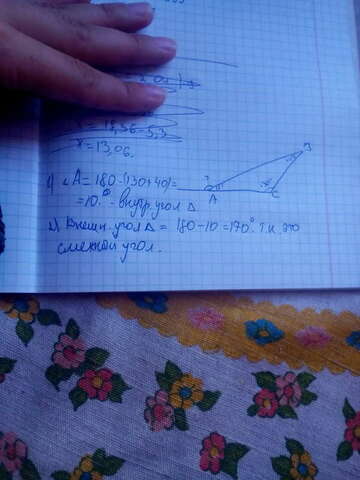 = 18,36 - 5,3
x = 13,06.
1) ∠A = 180-(130+40)=
= 10.° - внутр. угол Δ
2) Внешн. угол Δ = 180-10 = 170° т.к это
смежной угол.
?
A
B
C